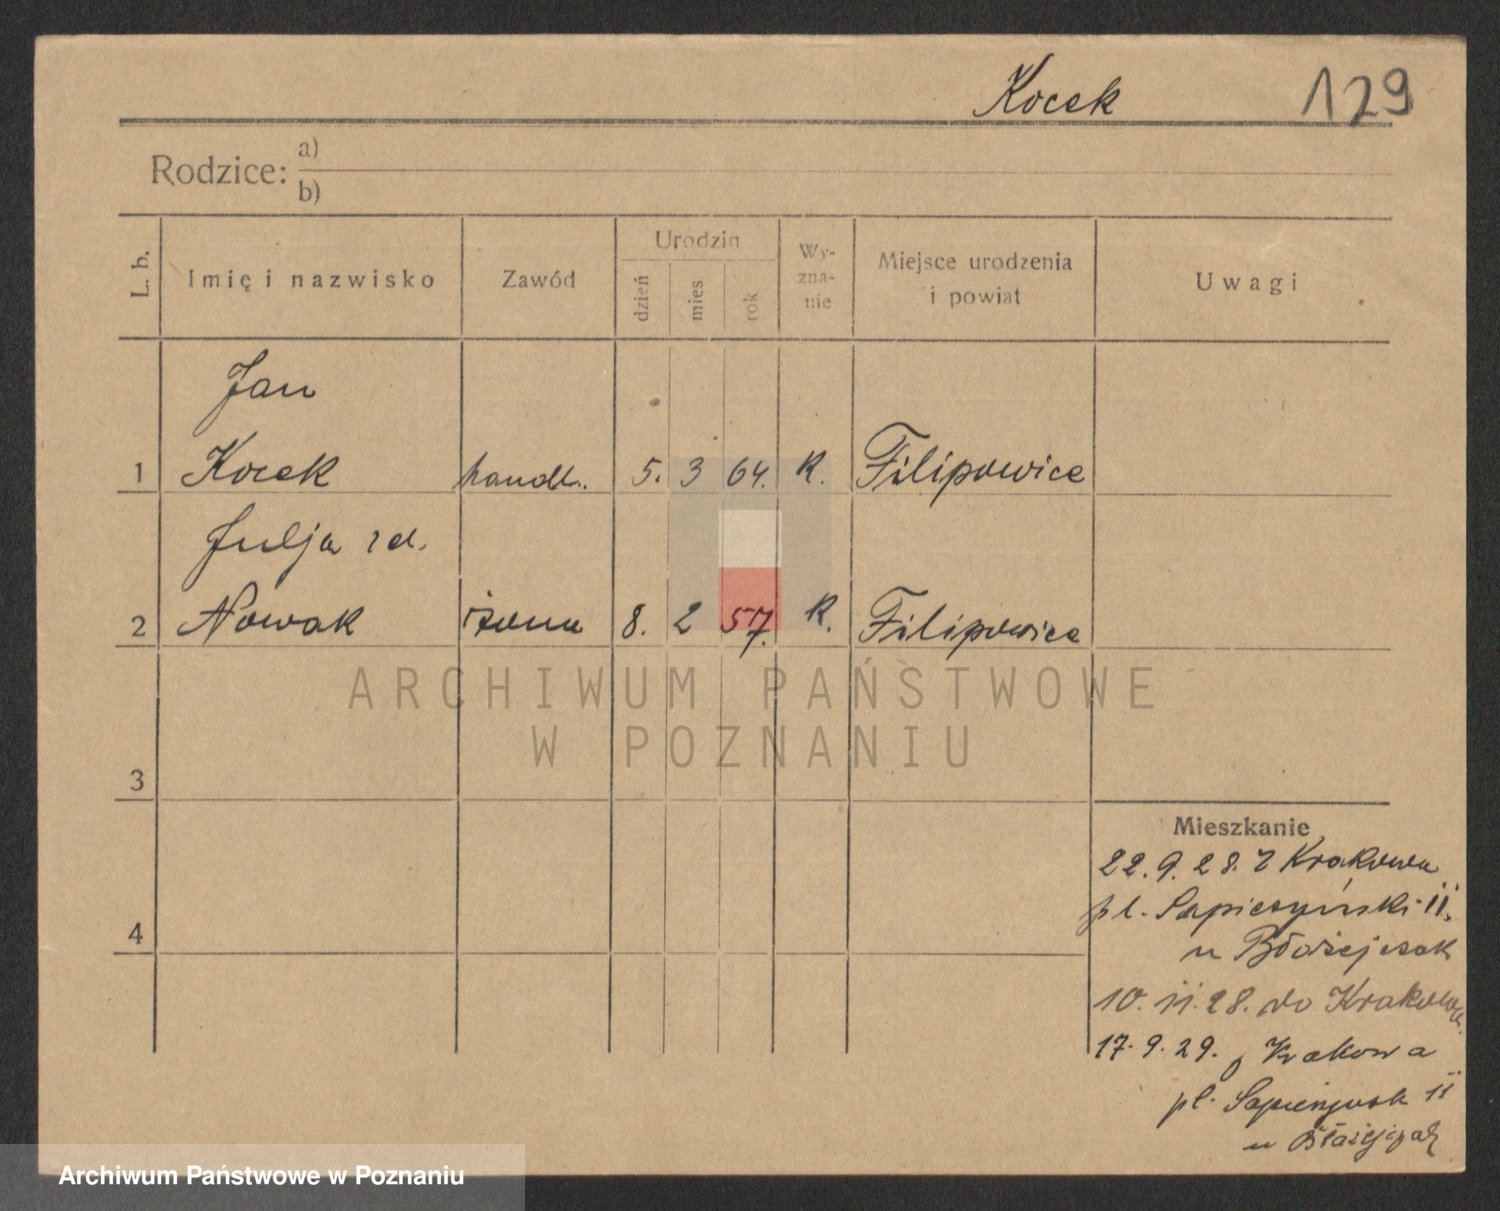 Kocek 129
Rodzice: a)
b)
L. b. Imię i nazwisko Zawód Urodzin dzień mies rok Wy-zna-nie Miejsce urodzenia i powiat Uwagi
Jan
1 Kocek handl. 5. 3 64. K. Filipowice
Julja rd.
2 Nowak żona 8. 2 57. K. Filipowice
ARCHIWUM PAŃSTWOWE
W POZNANIU
3
4
Mieszkanie
22.9.28. z Krakowa
pl. Sapieżyński 11.
u Błażejczak
10.11.28. do Krakowa
17.9.29. z Krakowa
pl. 11
u Błażejczak
Archiwum Państwowe w Poznaniu